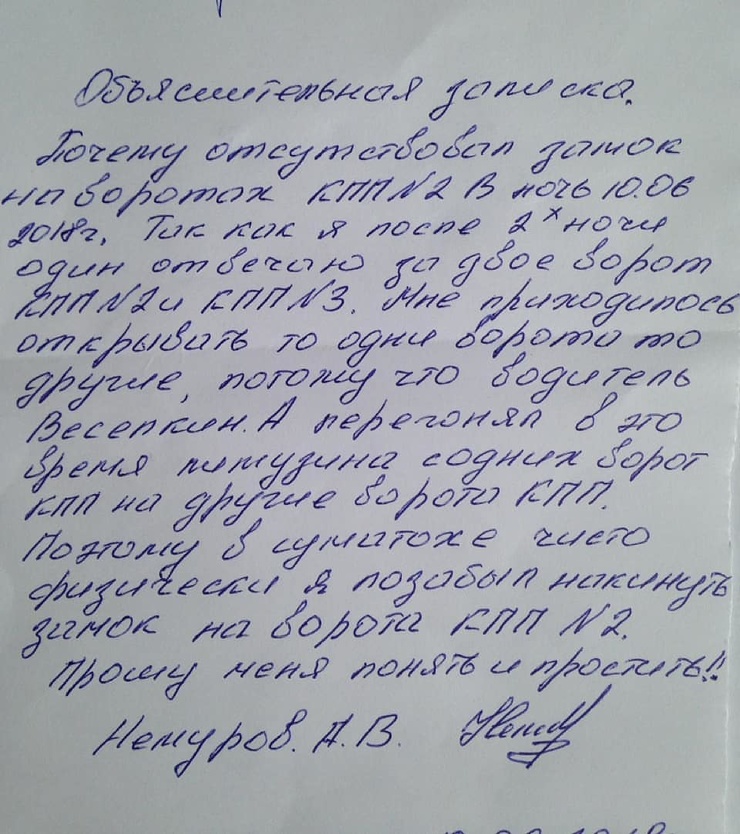 Объяснительная записка.
Почему отсутствовал замок
на воротах КПП N2 В ночь 10.06
2018г. Так как я после 2х ночи
один отвечаю за двое ворот
КПП N2 и КПП N3. Мне приходилось
открывать то одни ворота то
другие, потому что водитель
Веселкин. А перегонял в это
время лимузина с одних ворот
КПП на другие ворота КПП.
Поэтому в суматохе чисто
физически я позабыл накинуть
замок на ворота КПП N2.
Прошу меня понять и простить!!
Немуров. А. В.